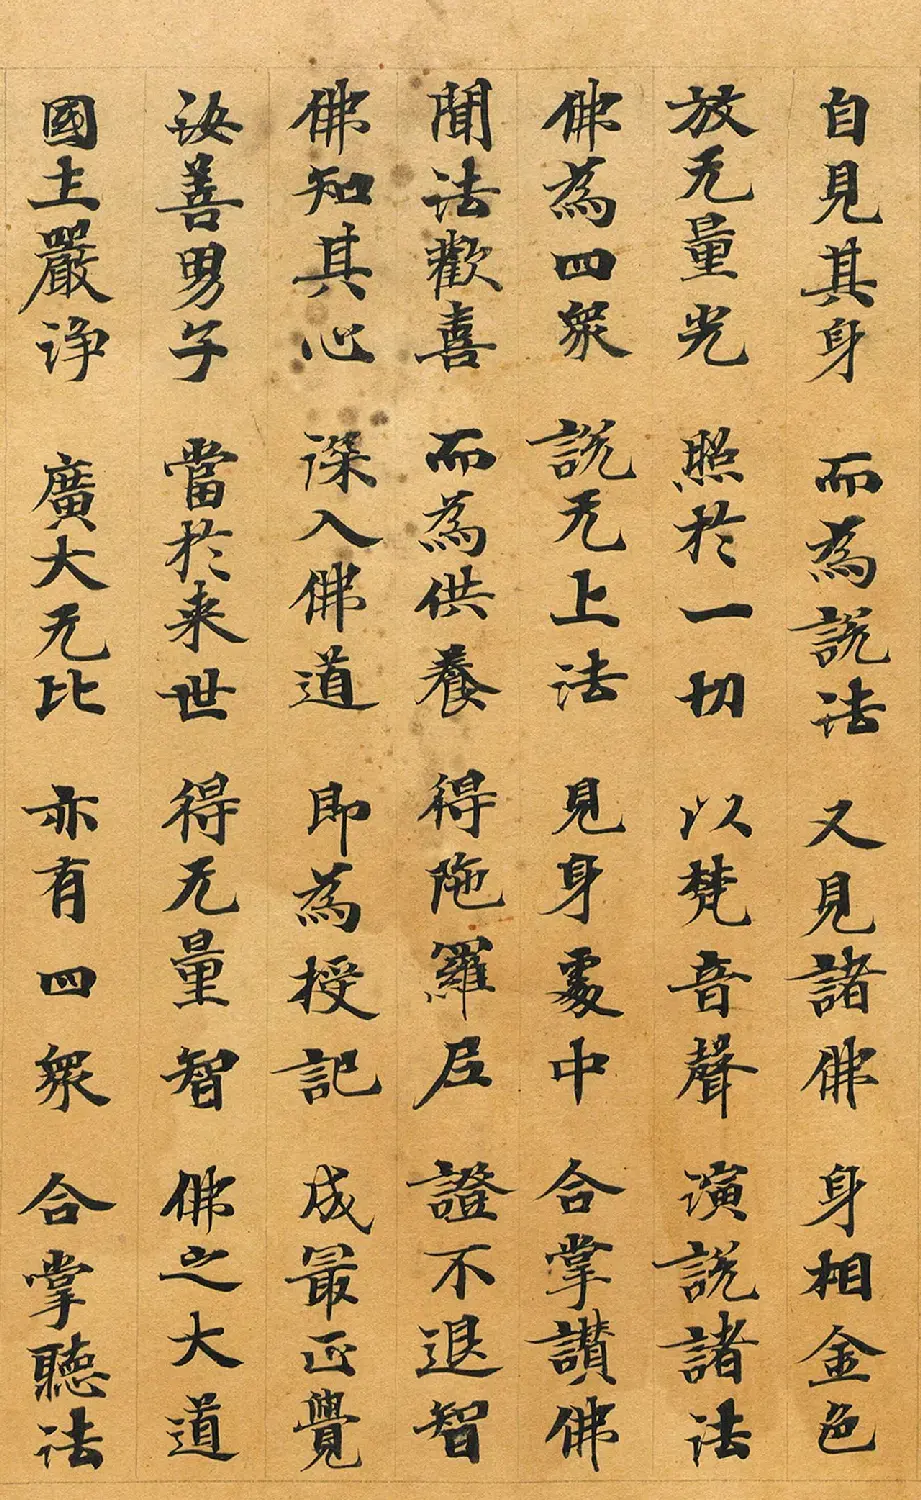 自見其身　而為說法　又見諸佛　身相金色
放无量光　照於一切　以梵音聲　演說諸法
佛為四眾　說无上法　見身處中　合掌讚佛
聞法歡喜　而為供養　得陁羅尼　證不退智
佛知其心　深入佛道　即為授記　成最正覺
汝善男子　當於来世　得无量智　佛之大道
國土嚴淨　廣大无比　亦有四眾　合掌聽法